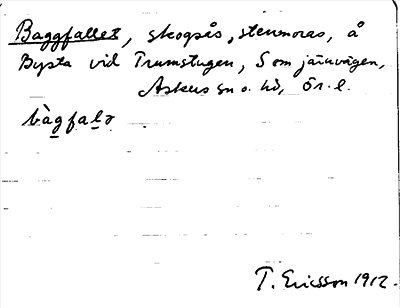 Baggfallet, skogsås, stenmoras, å
Bysta vid Trumstugen, S om järnvägen,
Askers sn o. hd, Ör. l.
bàgfalə
T. Ericsson 1912.